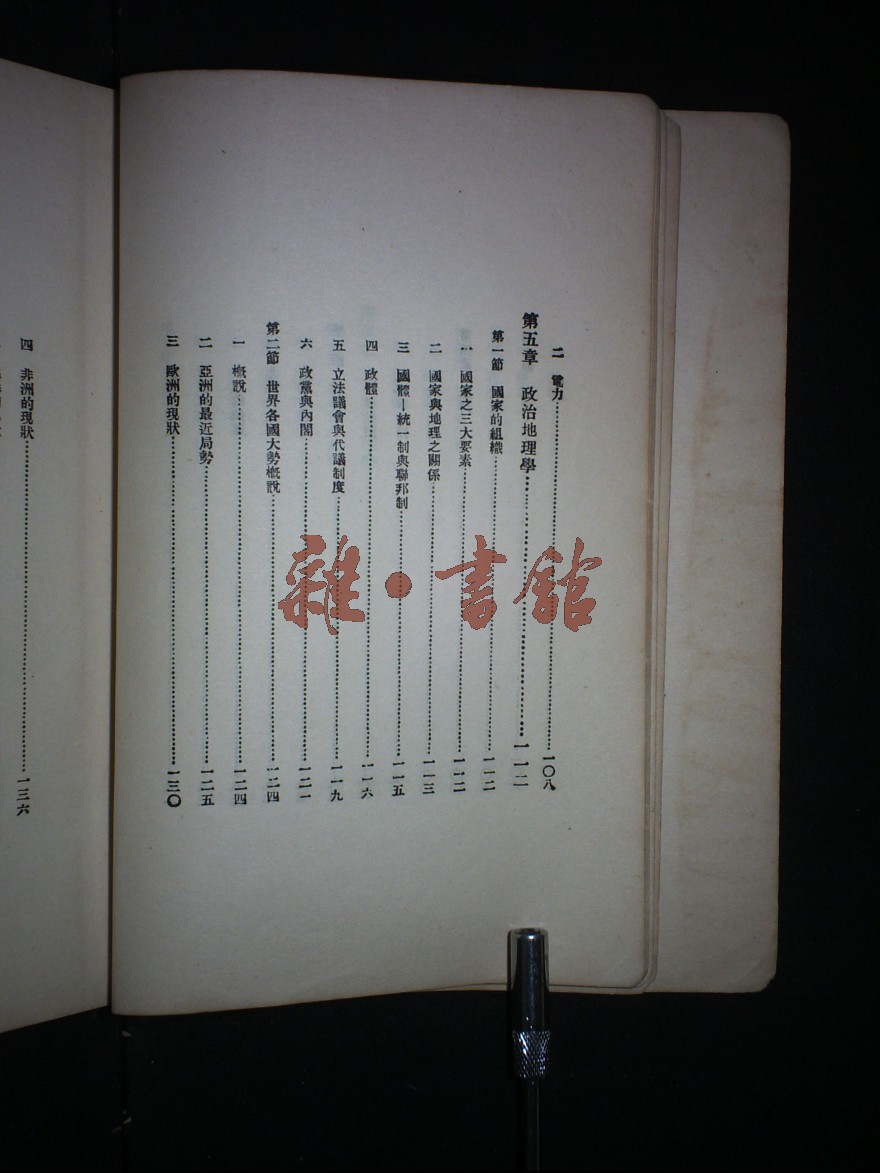 二　電力……一〇八
第五章　政治地理學……一一二
第一節　國家的組織……一一二
一　國家之三大要素……一一二
二　國家與地理之關係……一一三
三　國體—統一制與聯邦制……一一五
四　政體……一一六
五　立法議會與代議制度……一一九
六　政黨與內閣……一二一
第二節　世界各國大勢概說……一二四
一　概說……一二四
二　亞洲的最近局勢……一二五
三　歐洲的現狀……一三〇
四　非洲的現狀……一三六
雜·書館